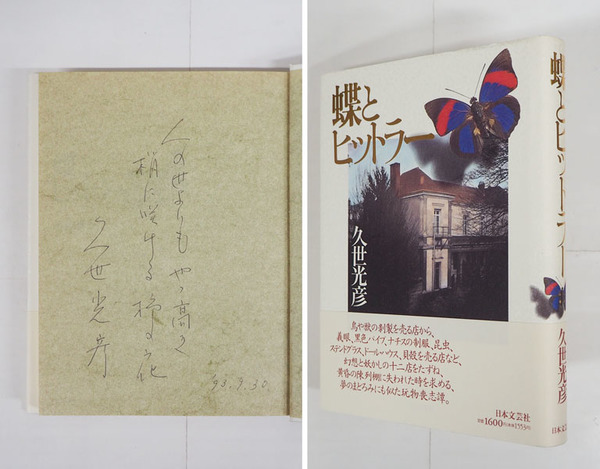 人の世よりもやゝ高く
梢に咲ける
花
久世光彦
93.9.30
蝶と
ヒットラー
久世光彦
鳥や獣の剥製を売る店から、
義眼、黒色パイプ、ナチスの制服、昆虫、
ステンドグラス、ドールハウス、貝殻を売る店など、
幻想と妖かしの十二店をたずね、
黄昏の陳列棚に失われた時を求める、
夢のまどろみにも似た玩物喪志譚。
日本文芸社
定価1600円(本体1553円)
蝶とヒットラー
久世光彦
日本文芸社